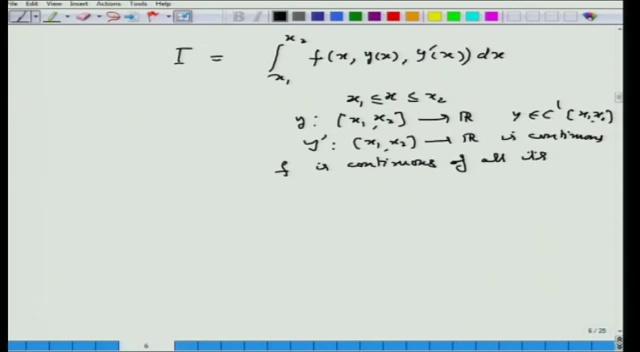 File Edit View Insert Actions Tools Help
I = ∫_{x₁}^{x₂} f(x, y(x), y'(x)) dx
x₁ ≤ x ≤ x₂
y : [x₁, x₂] → ℝ y ∈ C¹ [x₁, x₂]
y' : [x₁, x₂] → ℝ is continuous
f is continuous of all its
6 / 25
6